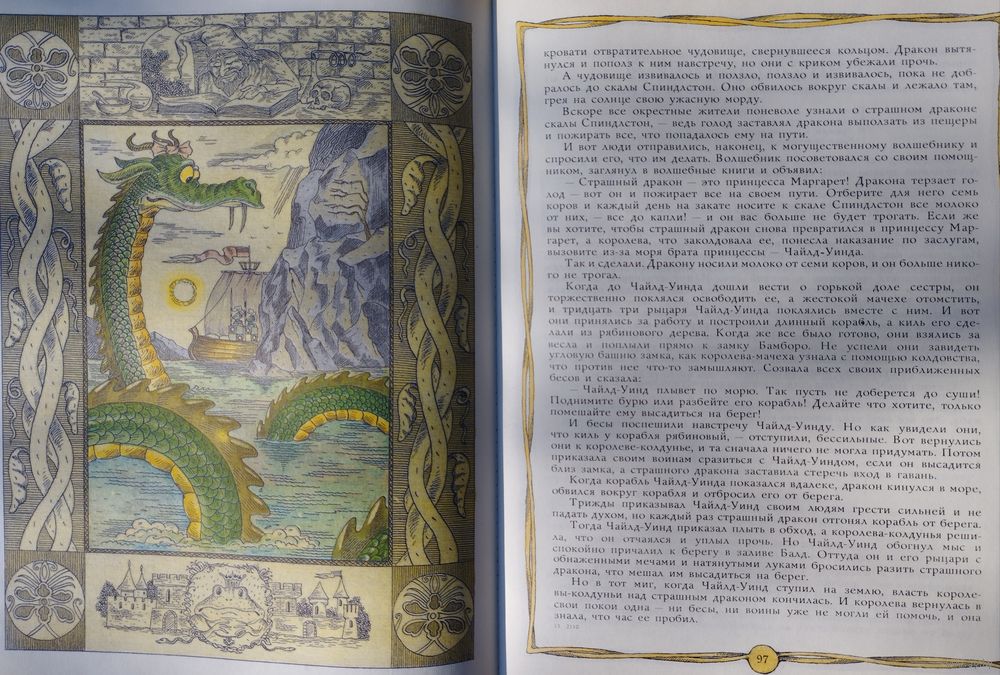 кровати отвратительное чудовище, свернувшееся кольцом. Дракон вытя-
нулся и пополз к ним навстречу, но они с криком убежали прочь.
А чудовище извивалось и ползло, ползло и извивалось, пока не доб-
ралось до скалы Спиндлстон. Оно обвилось вокруг скалы и лежало там,
грея на солнце свою ужасную морду.
Вскоре все окрестные жители поневоле узнали о страшном драконе
скалы Спиндлстон, — ведь голод заставлял дракона выползать из пещеры
и пожирать все, что попадалось ему на пути.
И вот люди отправились, наконец, к могущественному волшебнику и
спросили его, что им делать. Волшебник посоветовался со своим помощ-
ником, заглянул в волшебные книги и объявил:
— Страшный дракон — это принцесса Маргарет! Дракона терзает го-
лод — вот он и пожирает все на своем пути. Отберите для него семь
коров и каждый день на закате носите к скале Спиндлстон все молоко
от них, — все до капли! — и он вас больше не будет трогать. Если же
вы хотите, чтобы страшный дракон снова превратился в принцессу Мар-
гарет, а королева, что заколдовала ее, понесла наказание по заслугам,
вызовите из-за моря брата принцессы — Чайлд-Уинда.
Так и сделали. Дракону носили молоко от семи коров, и он больше нико-
го не трогал.
Когда до Чайлд-Уинда дошли вести о горькой доле сестры, он
торжественно поклялся освободить ее, а жестокой мачехе отомстить,
и тридцать три рыцаря Чайлд-Уинда поклялись вместе с ним. И вот
они принялись за работу и построили длинный корабль, а киль его сде-
лали из рябинового дерева. Когда же все было готово, они взялись за
весла и поплыли прямо к замку Бамборо. Не успели они завидеть
угловую башню замка, как королева-мачеха узнала с помощью колдовства,
что против нее что-то замышляют. Созвала всех своих приближенных
бесов и сказала:
— Чайлд-Уинд плывет по морю. Так пусть не доберется до суши!
Поднимите бурю или разбейте его корабль! Делайте что хотите, только
помешайте ему высадиться на берег!
И бесы поспешили навстречу Чайлд-Уинду. Но как увидели они,
что киль у корабля рябиновый, — отступили, бессильные. Вот вернулись
они к королеве-колдунье, и та сначала ничего не могла придумать. Потом
приказала своим воинам сразиться с Чайлд-Уиндом, если он высадится
близ замка, а страшного дракона заставила стеречь вход в гавань.
Когда корабль Чайлд-Уинда показался вдалеке, дракон кинулся в море,
обвился вокруг корабля и отбросил его от берега.
Трижды приказывал Чайлд-Уинд своим людям грести сильней и не
падать духом, но каждый раз страшный дракон отгонял корабль от берега.
Тогда Чайлд-Уинд приказал плыть в обход, а королева-колдунья реши-
ла, что он отчаялся и уплыл прочь. Но Чайлд-Уинд обогнул мыс и
спокойно причалил к берегу в заливе Балд. Оттуда он и его рыцари с
обнаженными мечами и натянутыми луками бросились разить страшного
дракона, что мешал им высадиться на берег.
Но в тот миг, когда Чайлд-Уинд ступил на землю, власть короле-
вы-колдуньи над страшным драконом кончилась. И королева вернулась в
свои покои одна — ни бесы, ни воины уже не могли ей помочь, и она
знала, что час ее пробил.
97